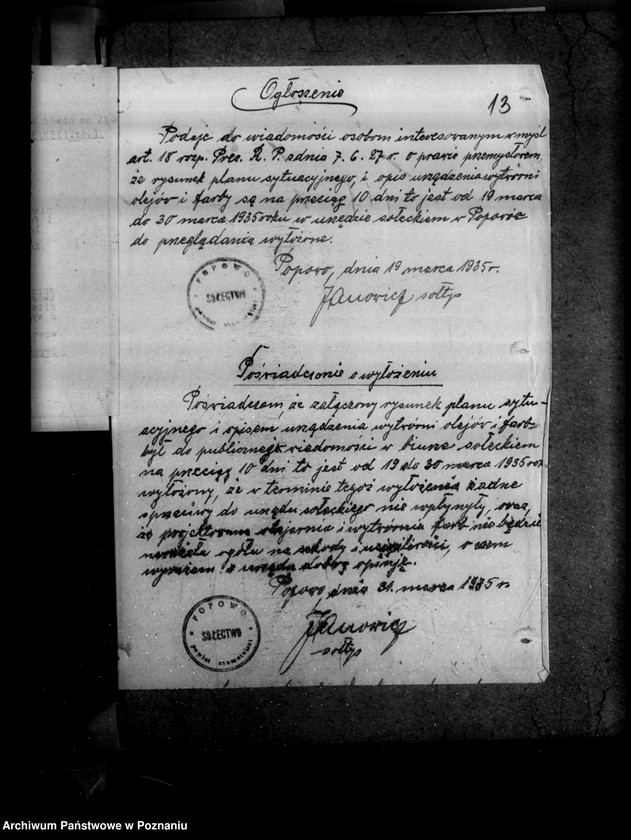 Ogłoszenie
13
Podaję do wiadomości osobom interesowanym w myśl
art. 18 rozp. Prez. R. P. z dnia 7. 6. 27 r. o prawie przemysłowem,
że rysunek planu sytuacyjnego, i opis urządzenia wytwórni
olejów i farby są na przeciąg 10 dni to jest od 19 marca
do 30 marca 1935 roku w urzędzie sołeckiem w Popowie
do przeglądania wyłożone.
Popowo, dnia 19 marca 1935 r.
Janowicz sołtys
POPOWO
SOŁECTWO
Poświadczenie o wyłożeniu
Poświadczam, że załączony rysunek planu sytu-
acyjnego i opisem urządzenia wytwórni olejów i farb
był do publicznej wiadomości w biurze sołeckiem
na przeciąg 10 dni to jest od 19 do 30 marca 1935 rok
wyłożony, że w terminie tegoż wyłożenia żadne
sprzeciwy do urzędu sołeckiego nie wpłynęły, oraz,
że projektowana olejarnia i wytwórnia farb nie będzie
narażała ogółu na szkody i uciążliwości, o czem
wyrażam z urzędu dobrą opinję.
Popowo, dnia 31. marca 1935 r.
Janowicz
sołtys
POPOWO
SOŁECTWO
powiat
Archiwum Państwowe w Poznaniu